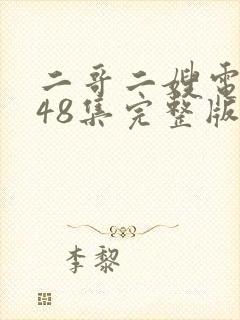 二哥二嫂电
48集完整版
李黎